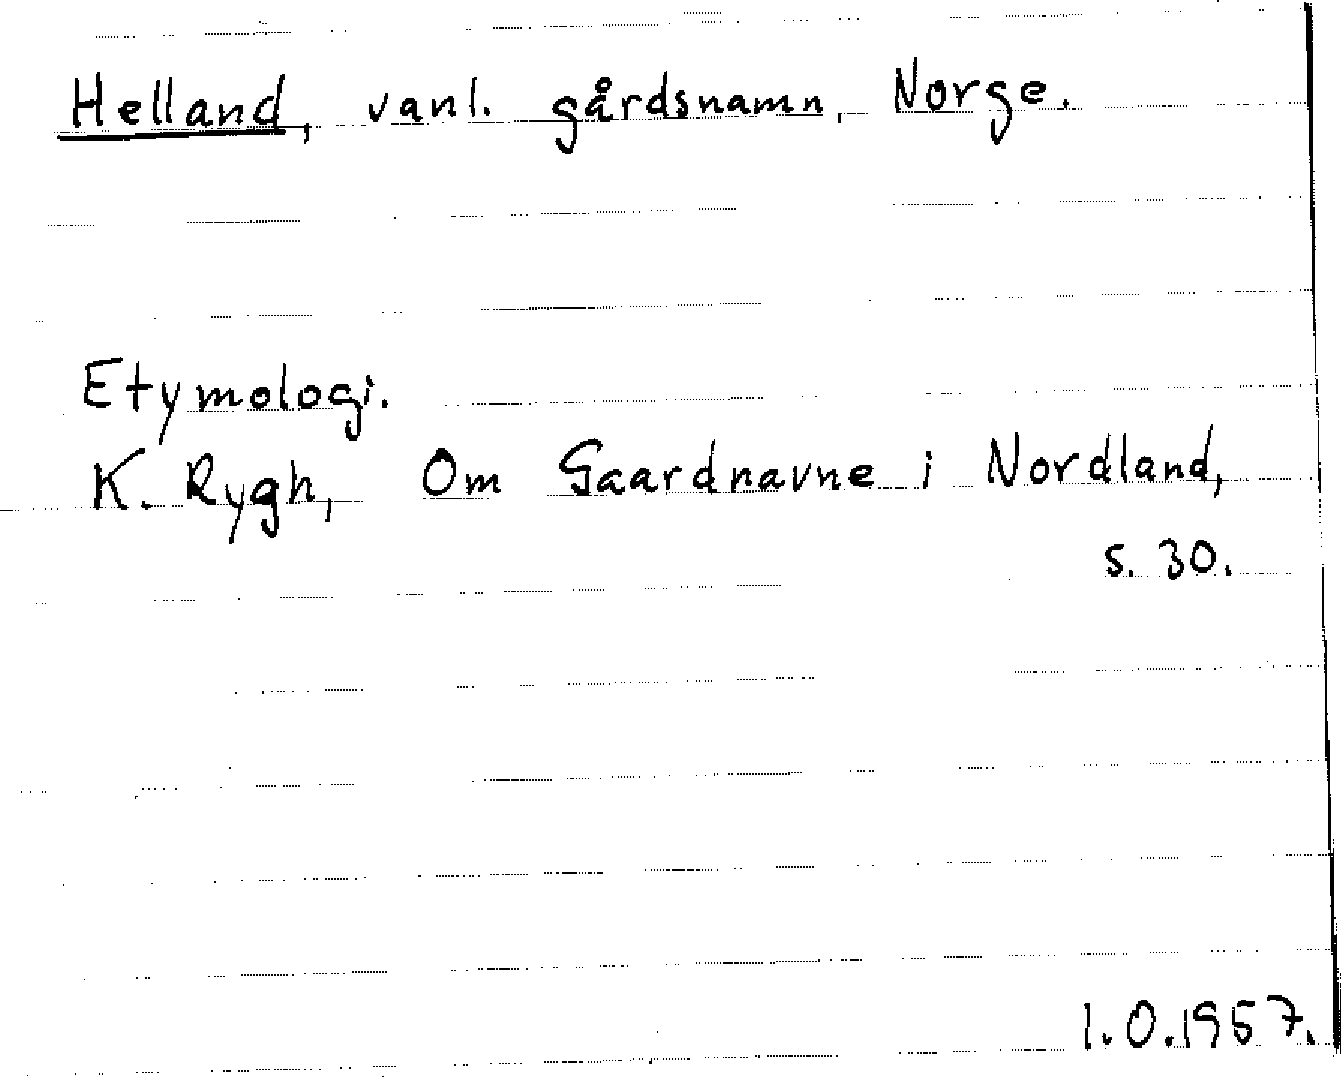 Helland, vanl. gårdsnamn, Norge.
Etymologi.
K. Rygh, Om Gaardnavne i Nordland,
s. 30.
I.O.1957.